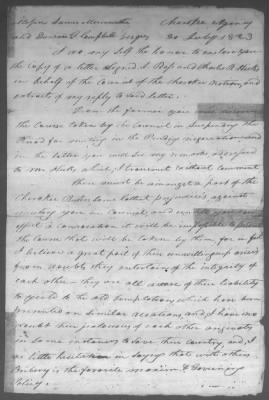 Messrs James Meriwether Cherokee Agency
and Duncan G. Campbell Esqrs 30 July 1823
I do my self the honor to enclose you
the copy of a letter signed by Path and Charles R. Hicks
in behalf of the Council of the Cherokee Nation, and
extracts of my reply to said letter.
From the former you will
the course taken by the Council in
for meeting in the
in the latter you will see my remarks addressed
to Mr Hicks which I transmit without comment
there must be amongst a part of the
Cherokee Rulers some latent prejudices against
meeting you in Council, and until you can
effect a convocation it will be impossible to
the course that will be taken by them for in fact
I believe a great part of their unwillingness arises
from doubts they entertain of the integrity of
each other — they are all aware of their liability
to yield to the old temptations which have been
presented on similar occasions, and I have no
doubt their jealousies of each other originate
in some instances to save their country, and I
as little hesitation in saying that with others
Bribery is the favorite maxim & Governing
Policy.